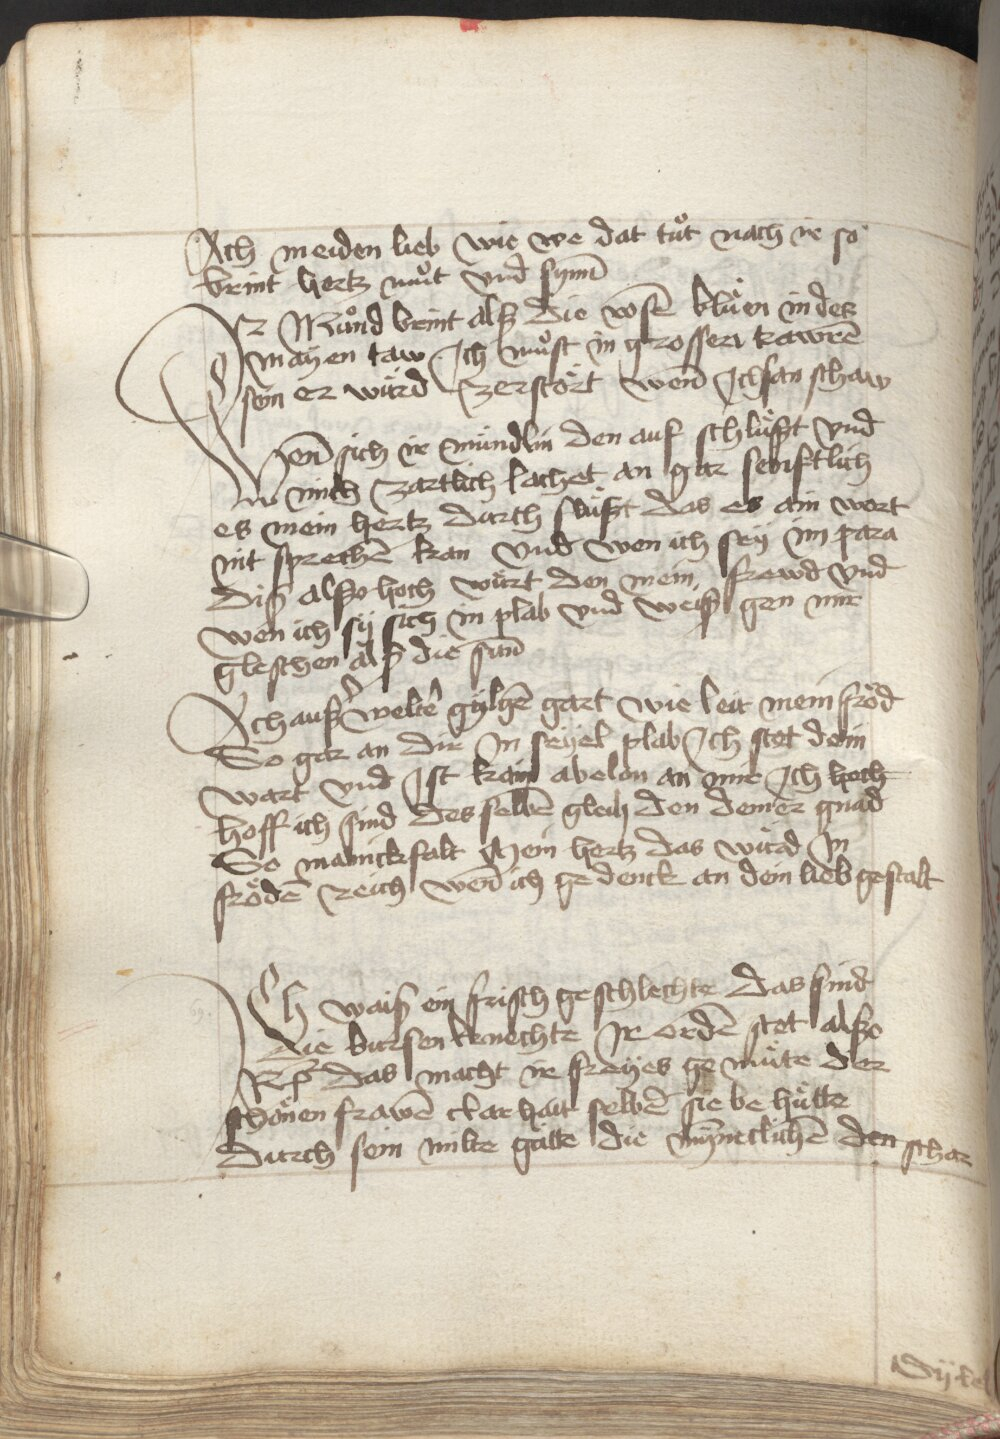 Ach meiden lieb wie we dat tůt nach ir so
brint hertz můt vnd synn̄
Ir Můnd brint alß die rosē blůen in des
mayen taw Ich můst in grossen trawrē
sein er würd zerstört wen̄ Ich san schaw
Wen̄ sich ir mündlin den auf schlüßt vnd
mich zartlich lachet an gar senftlich
es mein hertz durch flüßt das es ain wort
nit sprechē kan vnd wen ich sy im para
diß alßo hoch würt den mein frewd vnd
wen ich sy sich in plab vnd weiß gen mir
gleschen alß die sun̄
Ach außerwelte gylgē gart wie leit mein fröd
So gar an dir In feyel plab Ich stet dein
wart vnd Ist kain abelon an mir Ich hoch
hoff ich find des selbē gleich den deiner gnad
So manickfalt Mein hertz das würd In
frödē reich wen̄ ich gedenck an dein lieb gestalt
Ich waiß ein frisch geschlechte das sind
die bursen knechte Ir ordē stet alßo
das macht ir freyes gemüte der
schönen frawē clarhait selbē sie behütte
durch sein milte gütte die mynnetlichē den schar